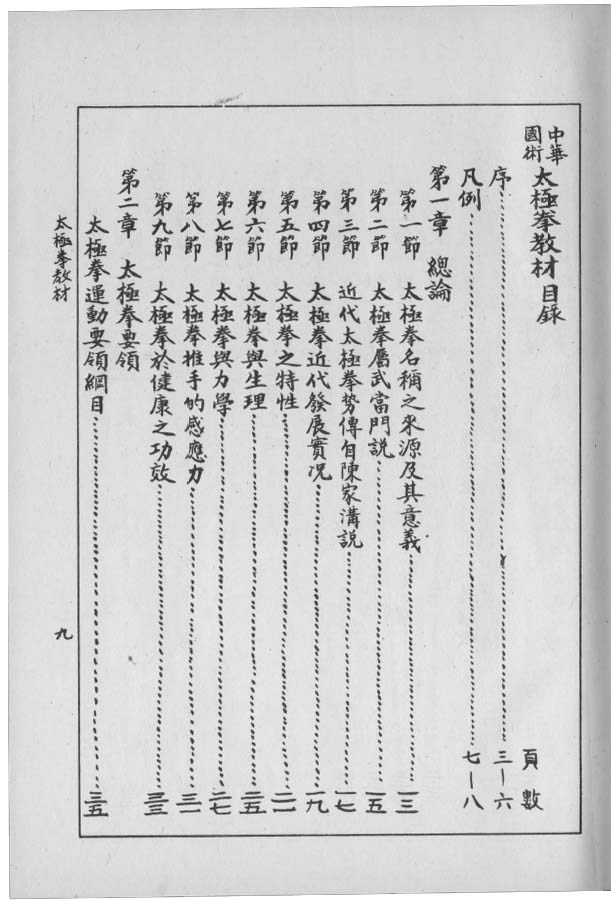 中華國術太極拳教材目錄
頁數
序 三—六
凡例 七—八
第一章 總論
第一節 太極拳名稱之來源及其意義 一三
第二節 太極拳屬武當門說 一五
第三節 近代太極拳势傳自陳家溝說 一七
第四節 太極拳近代發展實况 一九
第五節 太極拳之特性 二一
第六節 太極拳與生理 二五
第七節 太極拳與力學 二七
第八節 太極拳推手的感應力 三一
第九節 太極拳於健康之功效 三三
第二章 太極拳要領
太極拳運動要領綱目 三五
太極拳教材
九